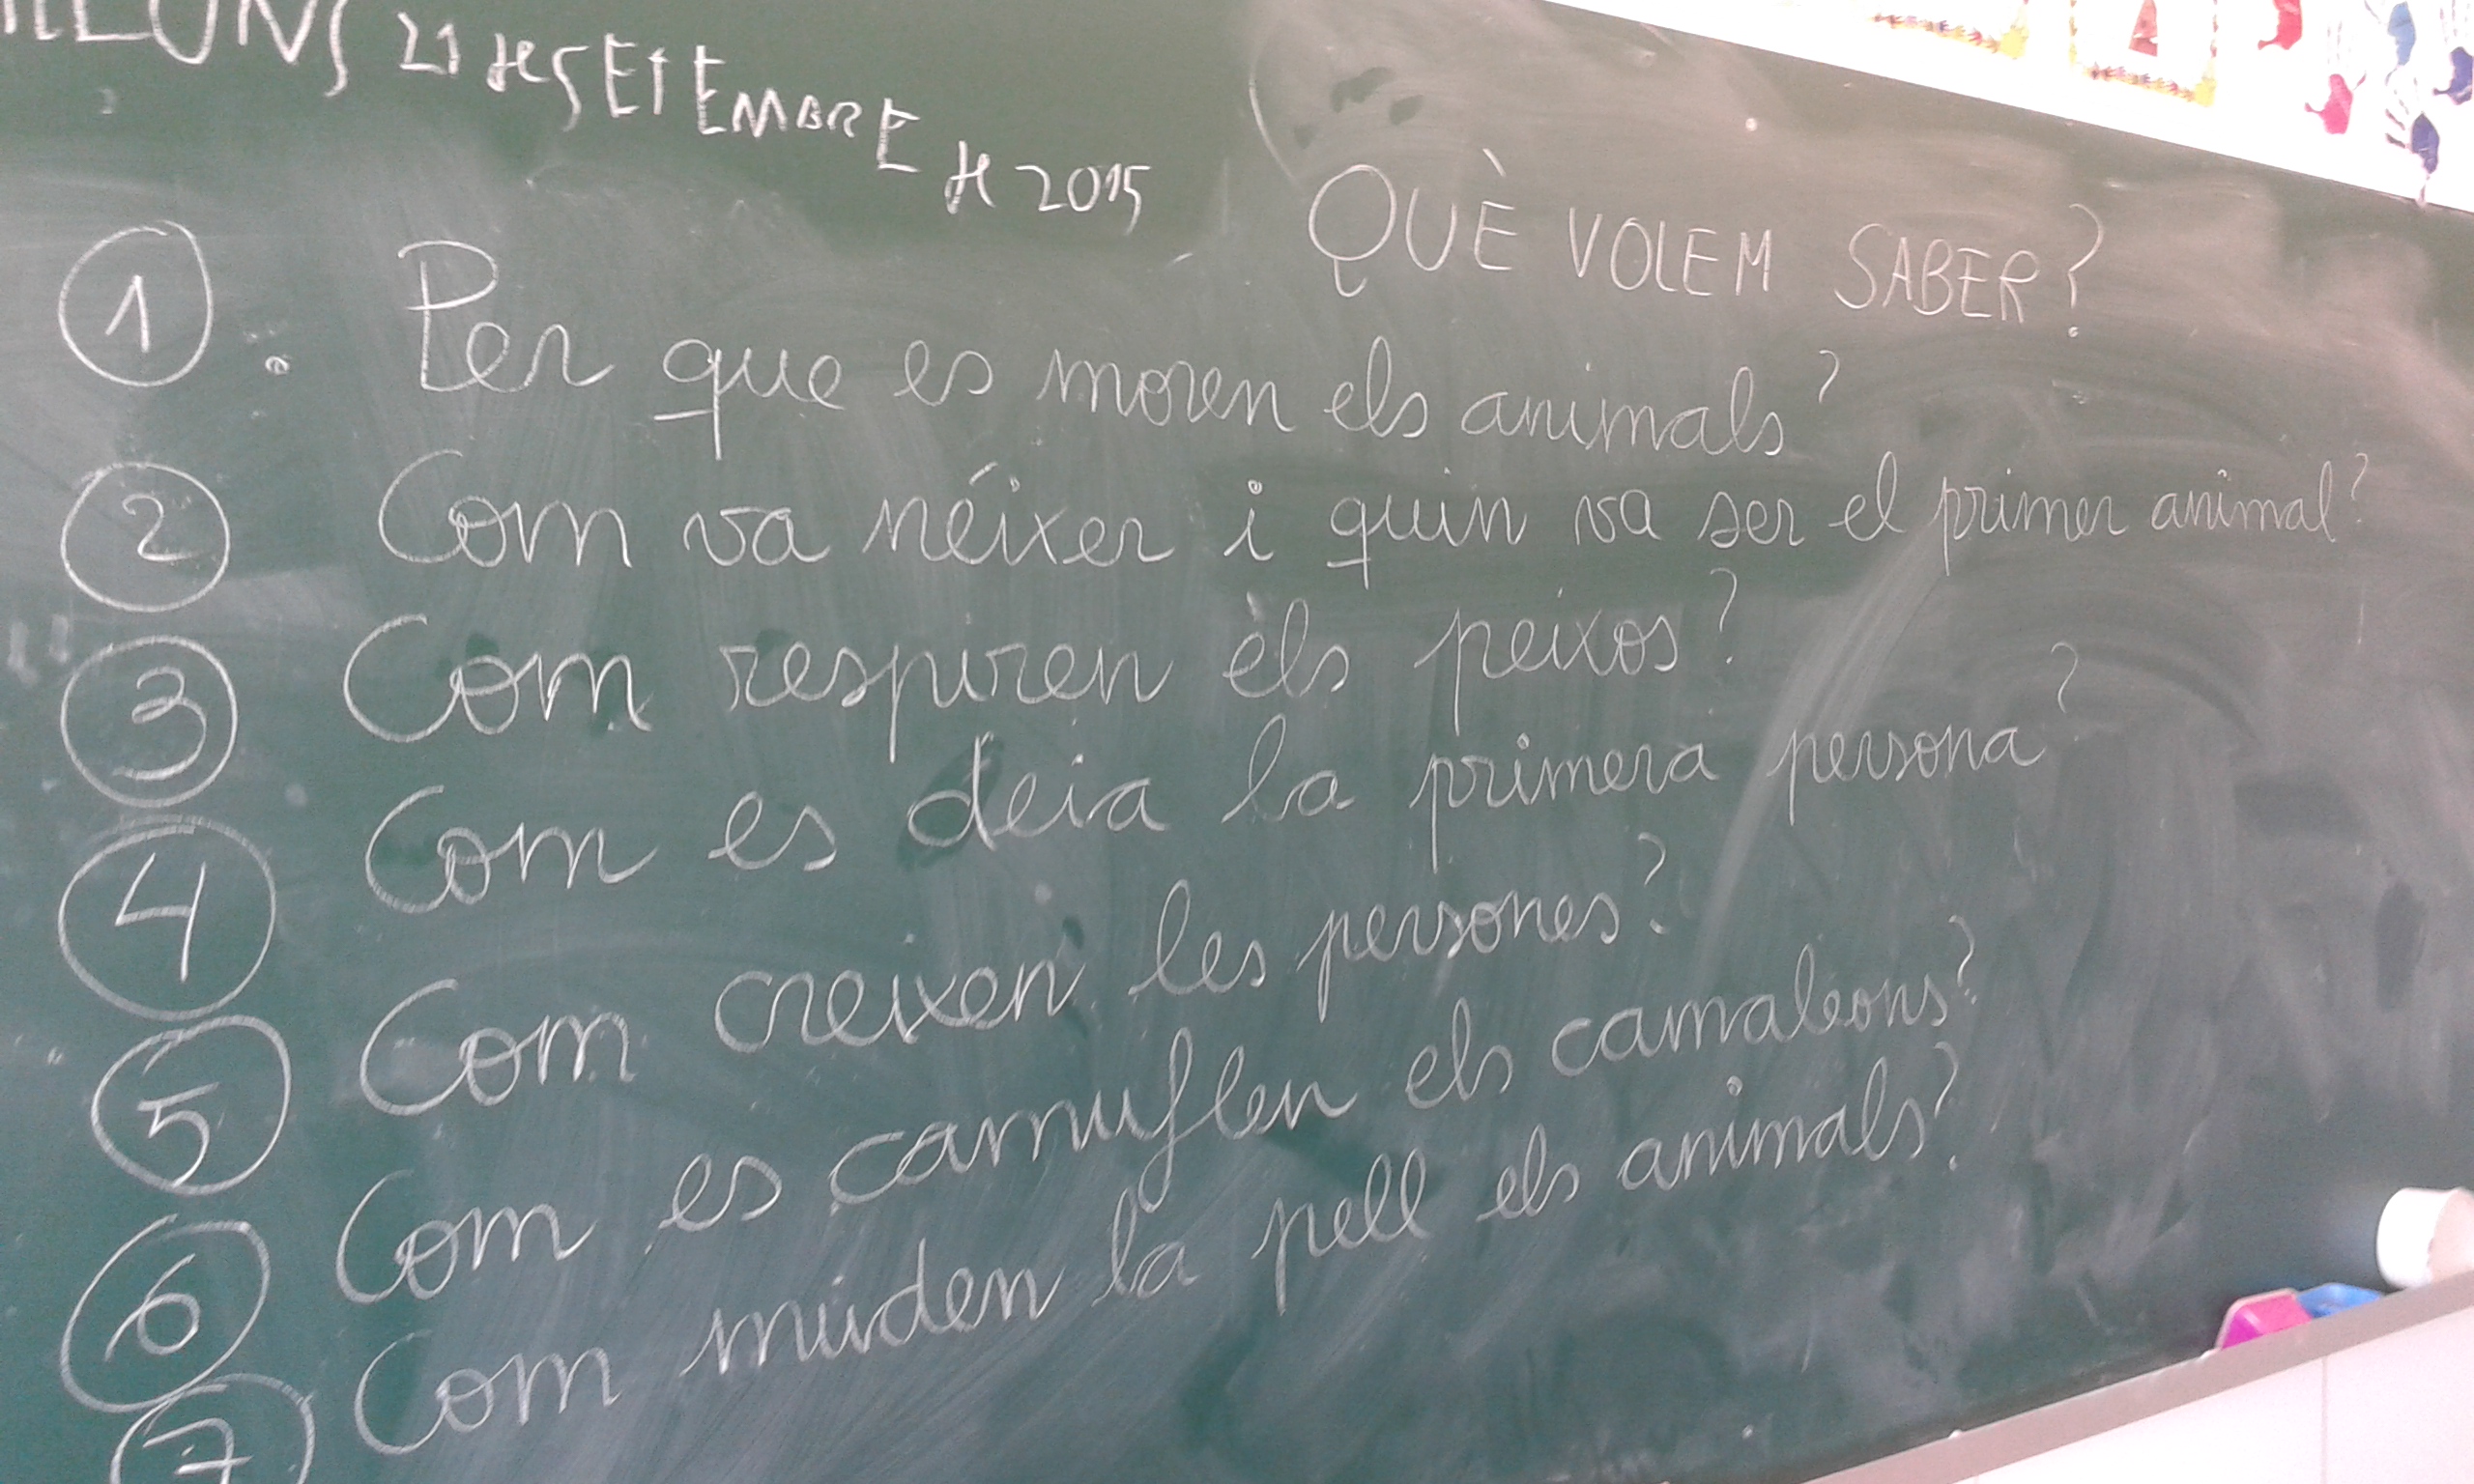 DILLUNS 21 de SETEMBRE de 2015
QUÈ VOLEM SABER?
1. Per que es moren els animals?
2 Com va néixer i quin va ser el primer animal?
3 Com respiren els peixos?
4 Com es deia la primera persona?
5 Com creixen les persones?
6 Com es camuflen els camaleons?
7 Com muden la pell els animals?